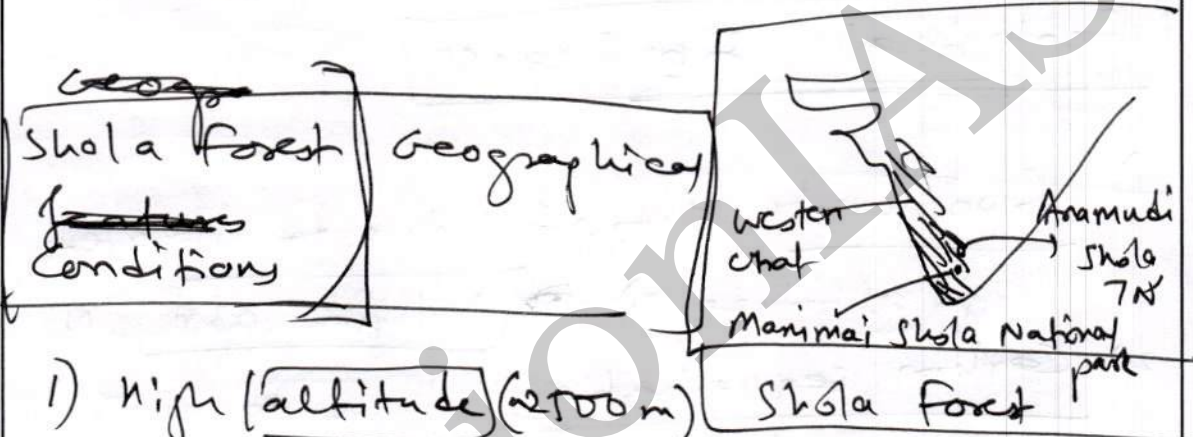 Shola Forest Geographical
Conditions
Western
Ghat
Anamudi
Shola
Manimai Shola National
park
1) High altitude (~2500 m)
Shola Forest